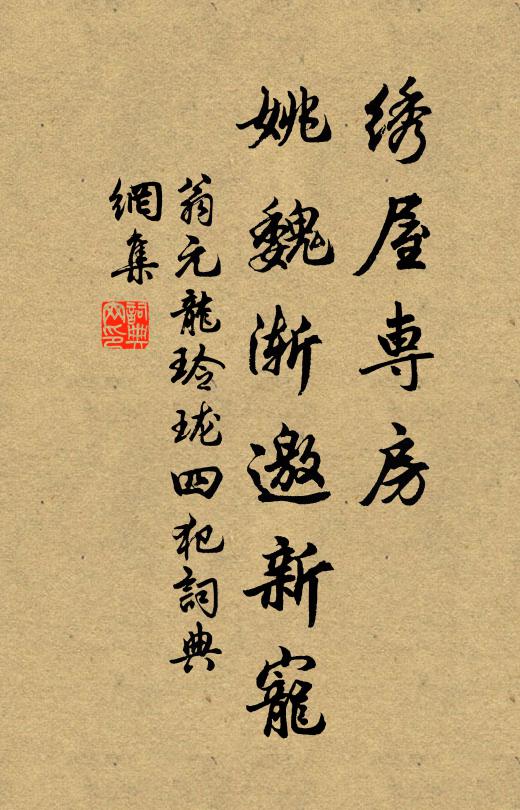 绣屋専房
姚魏渐邀新寵
翁元龍玲珑四犯詞典
網集
詞典
网印